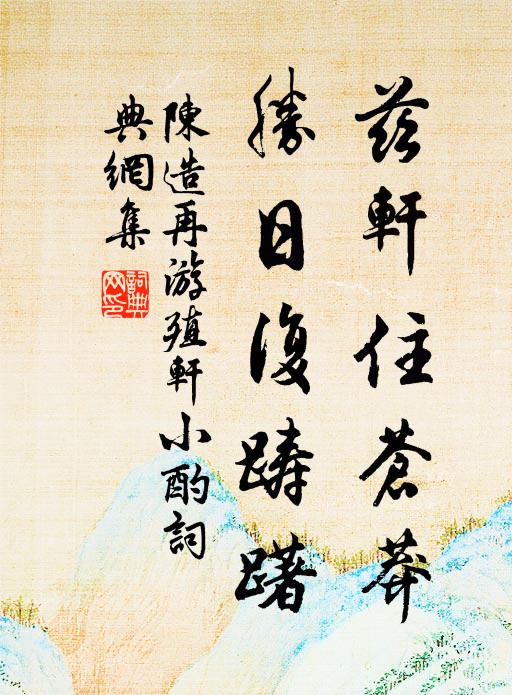 茲軒住蒼莽
勝日復躊躇
陳造再游殖軒小酌詞
典網集
詞典网印